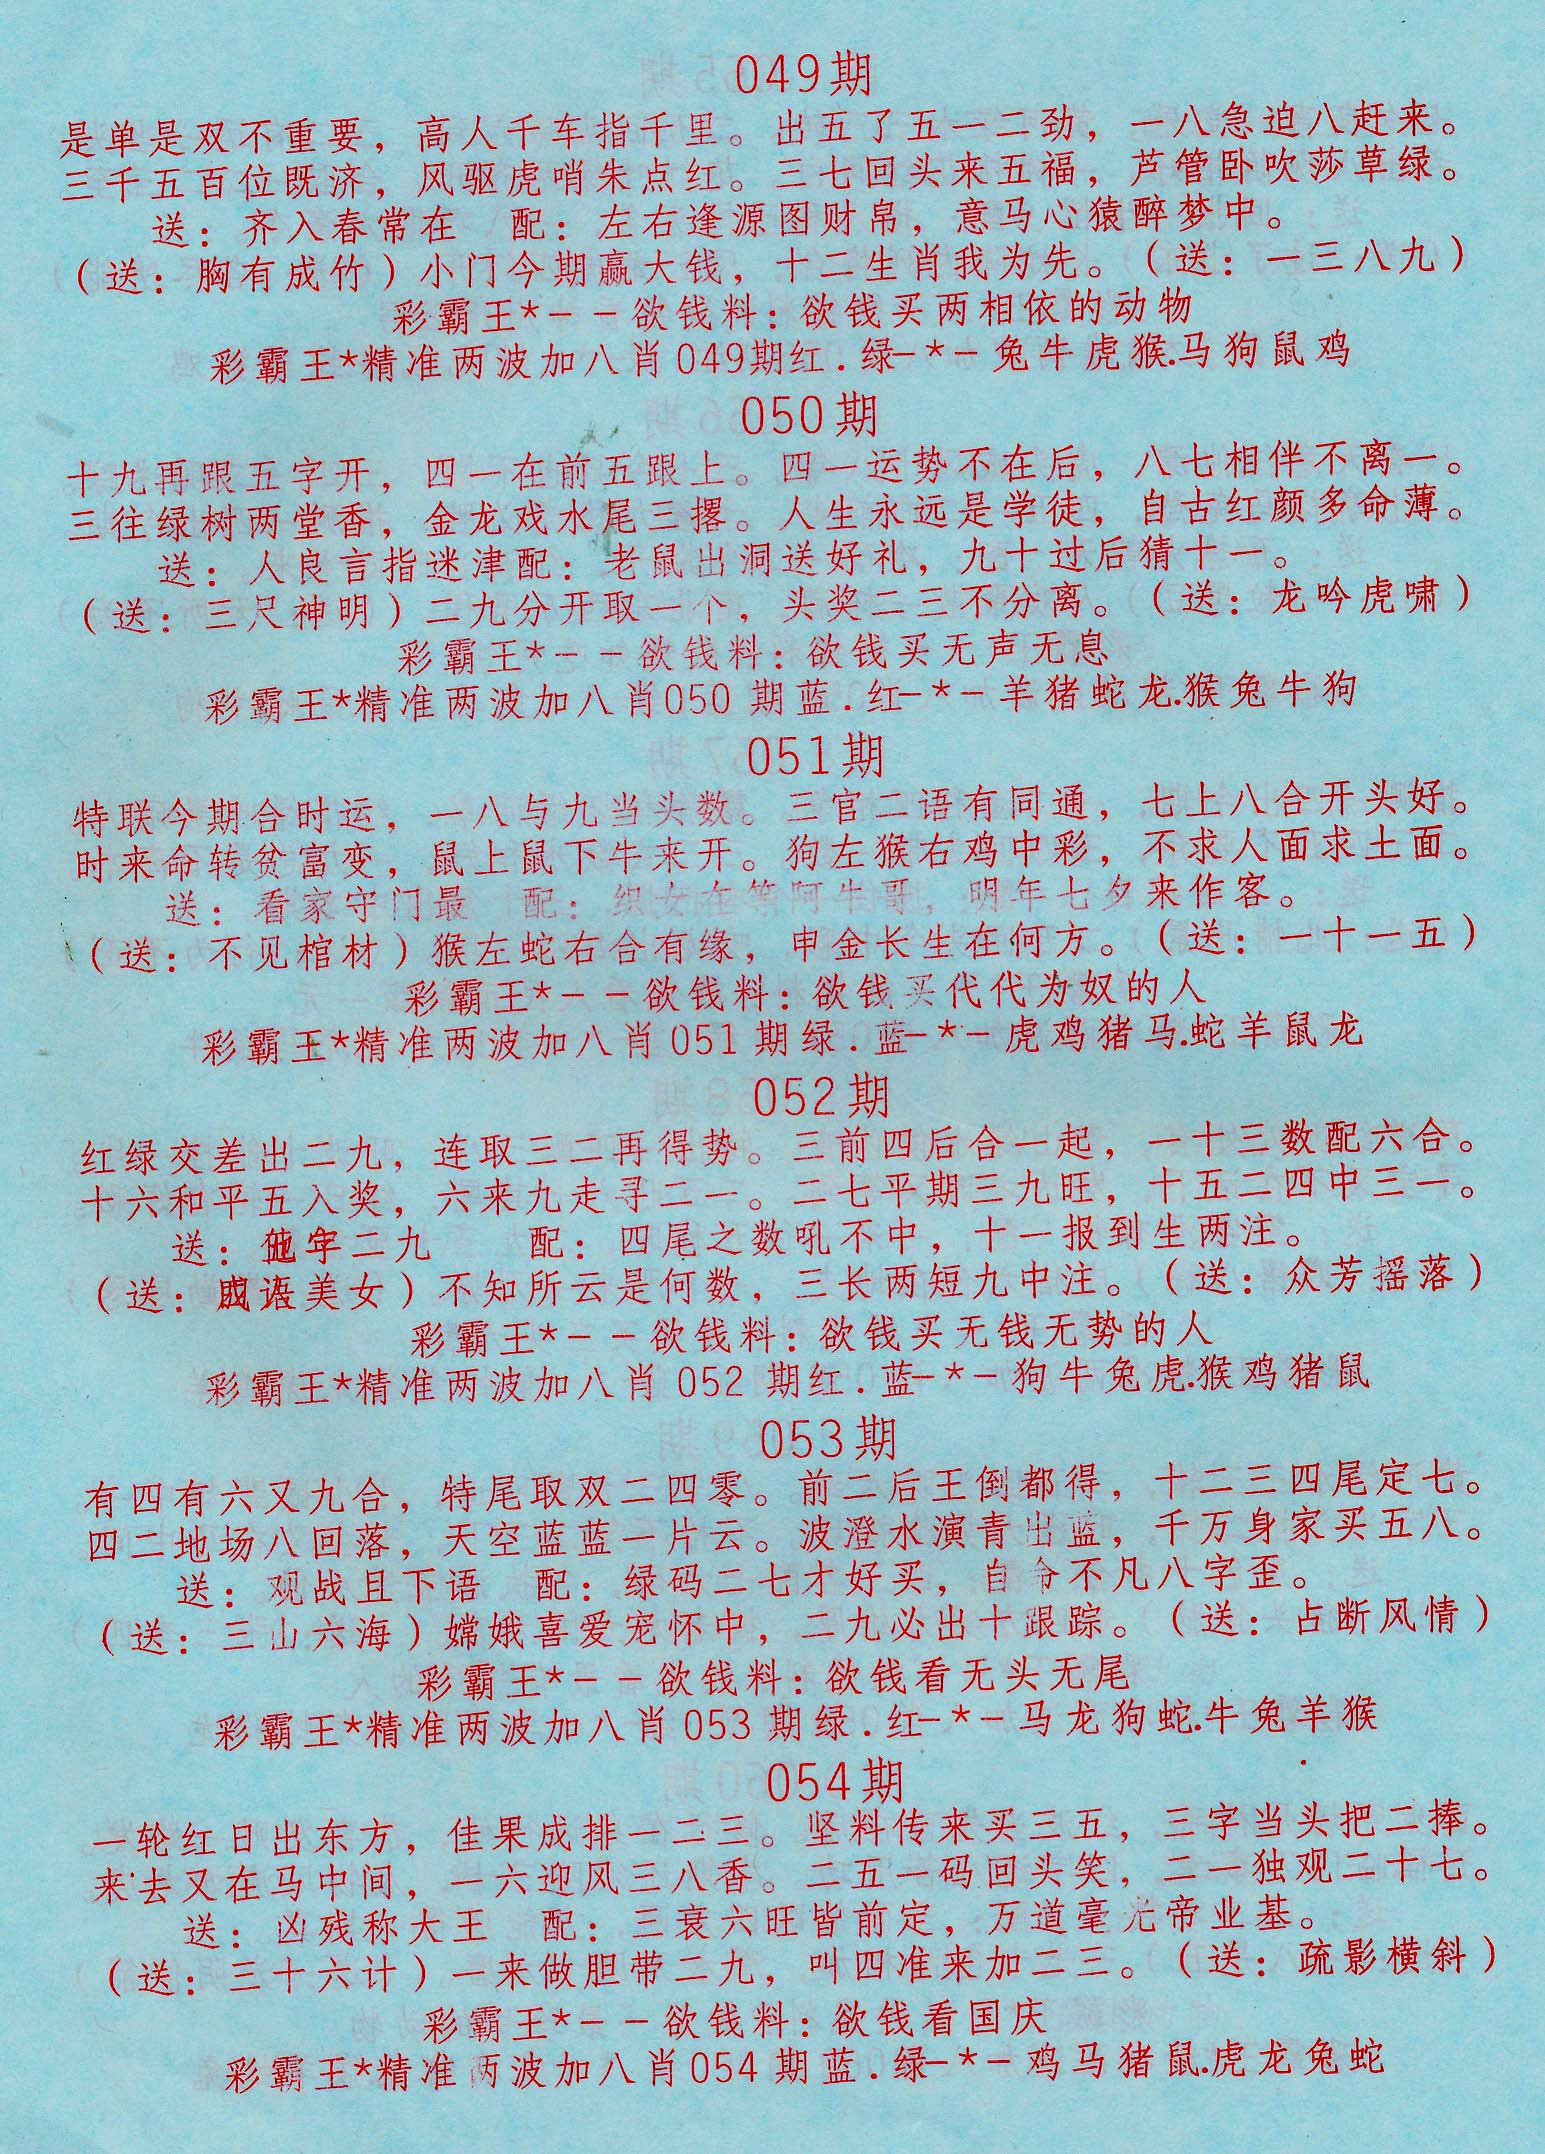 049期
是单是双不重要，高人千车指千里。出五了五一二劲，一八急迫八赶来。
三千五百位既济，风驱虎哨朱点红。三七回头来五福，芦管卧吹莎草绿。
送：齐入春常在 配：左右逢源图财帛，意马心猿醉梦中。
（送：胸有成竹）小门今期赢大钱，十二生肖我为先。（送：一三八九）
彩霸王*--欲钱料：欲钱买两相依的动物
彩霸王*精准两波加八肖049期红.绿-*-兔牛虎猴.马狗鼠鸡
050期
十九再跟五字开，四一在前五跟上。四一运势不在后，八七相伴不离一。
三往绿树两堂香，金龙戏水尾三撂。人生永远是学徒，自古红颜多命薄。
送：人良言指迷津配：老鼠出洞送好礼，九十过后猜十一。
（送：三尺神明）二九分开取一个，头奖二三不分离。（送：龙吟虎啸）
彩霸王*--欲钱料：欲钱买无声无息
彩霸王*精准两波加八肖050期蓝.红-*-羊猪蛇龙.猴兔牛狗
051期
特联今期合时运，一八与九当头数。三官二语有同通，七上八合开头好。
时来命转贫富变，鼠上鼠下牛来开。狗左猴右鸡中彩，不求人面求土面。
送：看家守门最 配：织女在等阿牛哥，明年七夕来作客。
（送：不见棺材）猴左蛇右合有缘，申金长生在何方。（送：一十一五）
彩霸王*--欲钱料：欲钱买代代为奴的人
彩霸王*精准两波加八肖051期绿.蓝-*-虎鸡猪马.蛇羊鼠龙
052期
红绿交差出二九，连取三二再得势。三前四后合一起，一十三数配六合。
十六和平五入奖，六来九走寻二一。二七平期三九旺，十五二四中三一。
送：二九 配：四尾之数吼不中，十一报到生两注。
（送：美女）不知所云是何数，三长两短九中注。（送：众芳摇落）
彩霸王*--欲钱料：欲钱买无钱无势的人
彩霸王*精准两波加八肖052期红.蓝-*-狗牛兔虎.猴鸡猪鼠
053期
有四有六又九合，特尾取双二四零。前二后王倒都得，十二三四尾定七。
四二地场八回落，天空蓝蓝一片云。波澄水演青出蓝，千万身家买五八。
送：观战且下语 配：绿码二七才好买，自命不凡八字歪。
（送：三山六海）嫦娥喜爱宠怀中，二九必出十跟踪。（送：占断风情）
彩霸王*--欲钱料：欲钱看无头无尾
彩霸王*精准两波加八肖053期绿.红-*-马龙狗蛇.牛兔羊猴
054期
一轮红日出东方，佳果成排一二三。坚料传来买三五，三字当头把二捧。
来去又在马中间，一六迎风三八香。二五一码回头笑，二一独观二十七。
送：凶残称大王 配：三衰六旺皆前定，万道毫光帝业基。
（送：三十六计）一来做胆带二九，叫四准来加二三。（送：疏影横斜）
彩霸王*--欲钱料：欲钱看国庆
彩霸王*精准两波加八肖054期蓝.绿-*-鸡马猪鼠.虎龙兔蛇